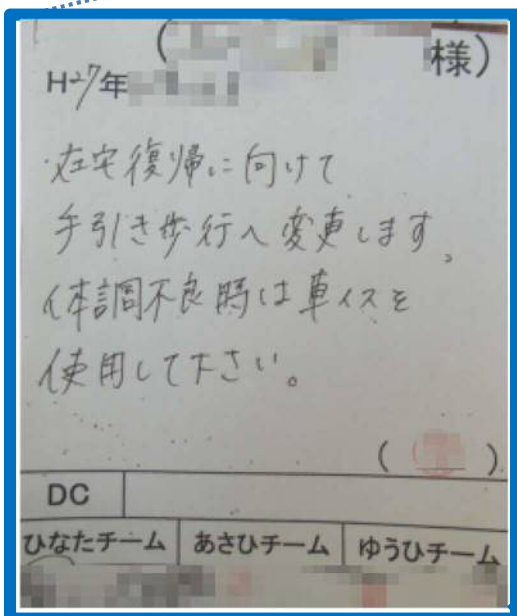 (　　様)
H27年
・在宅復帰に向けて
手引き歩行へ変更します。
体調不良時は車イスを
使用して下さい。
(　　)
DC
ひなたチーム　あさひチーム　ゆうひチーム